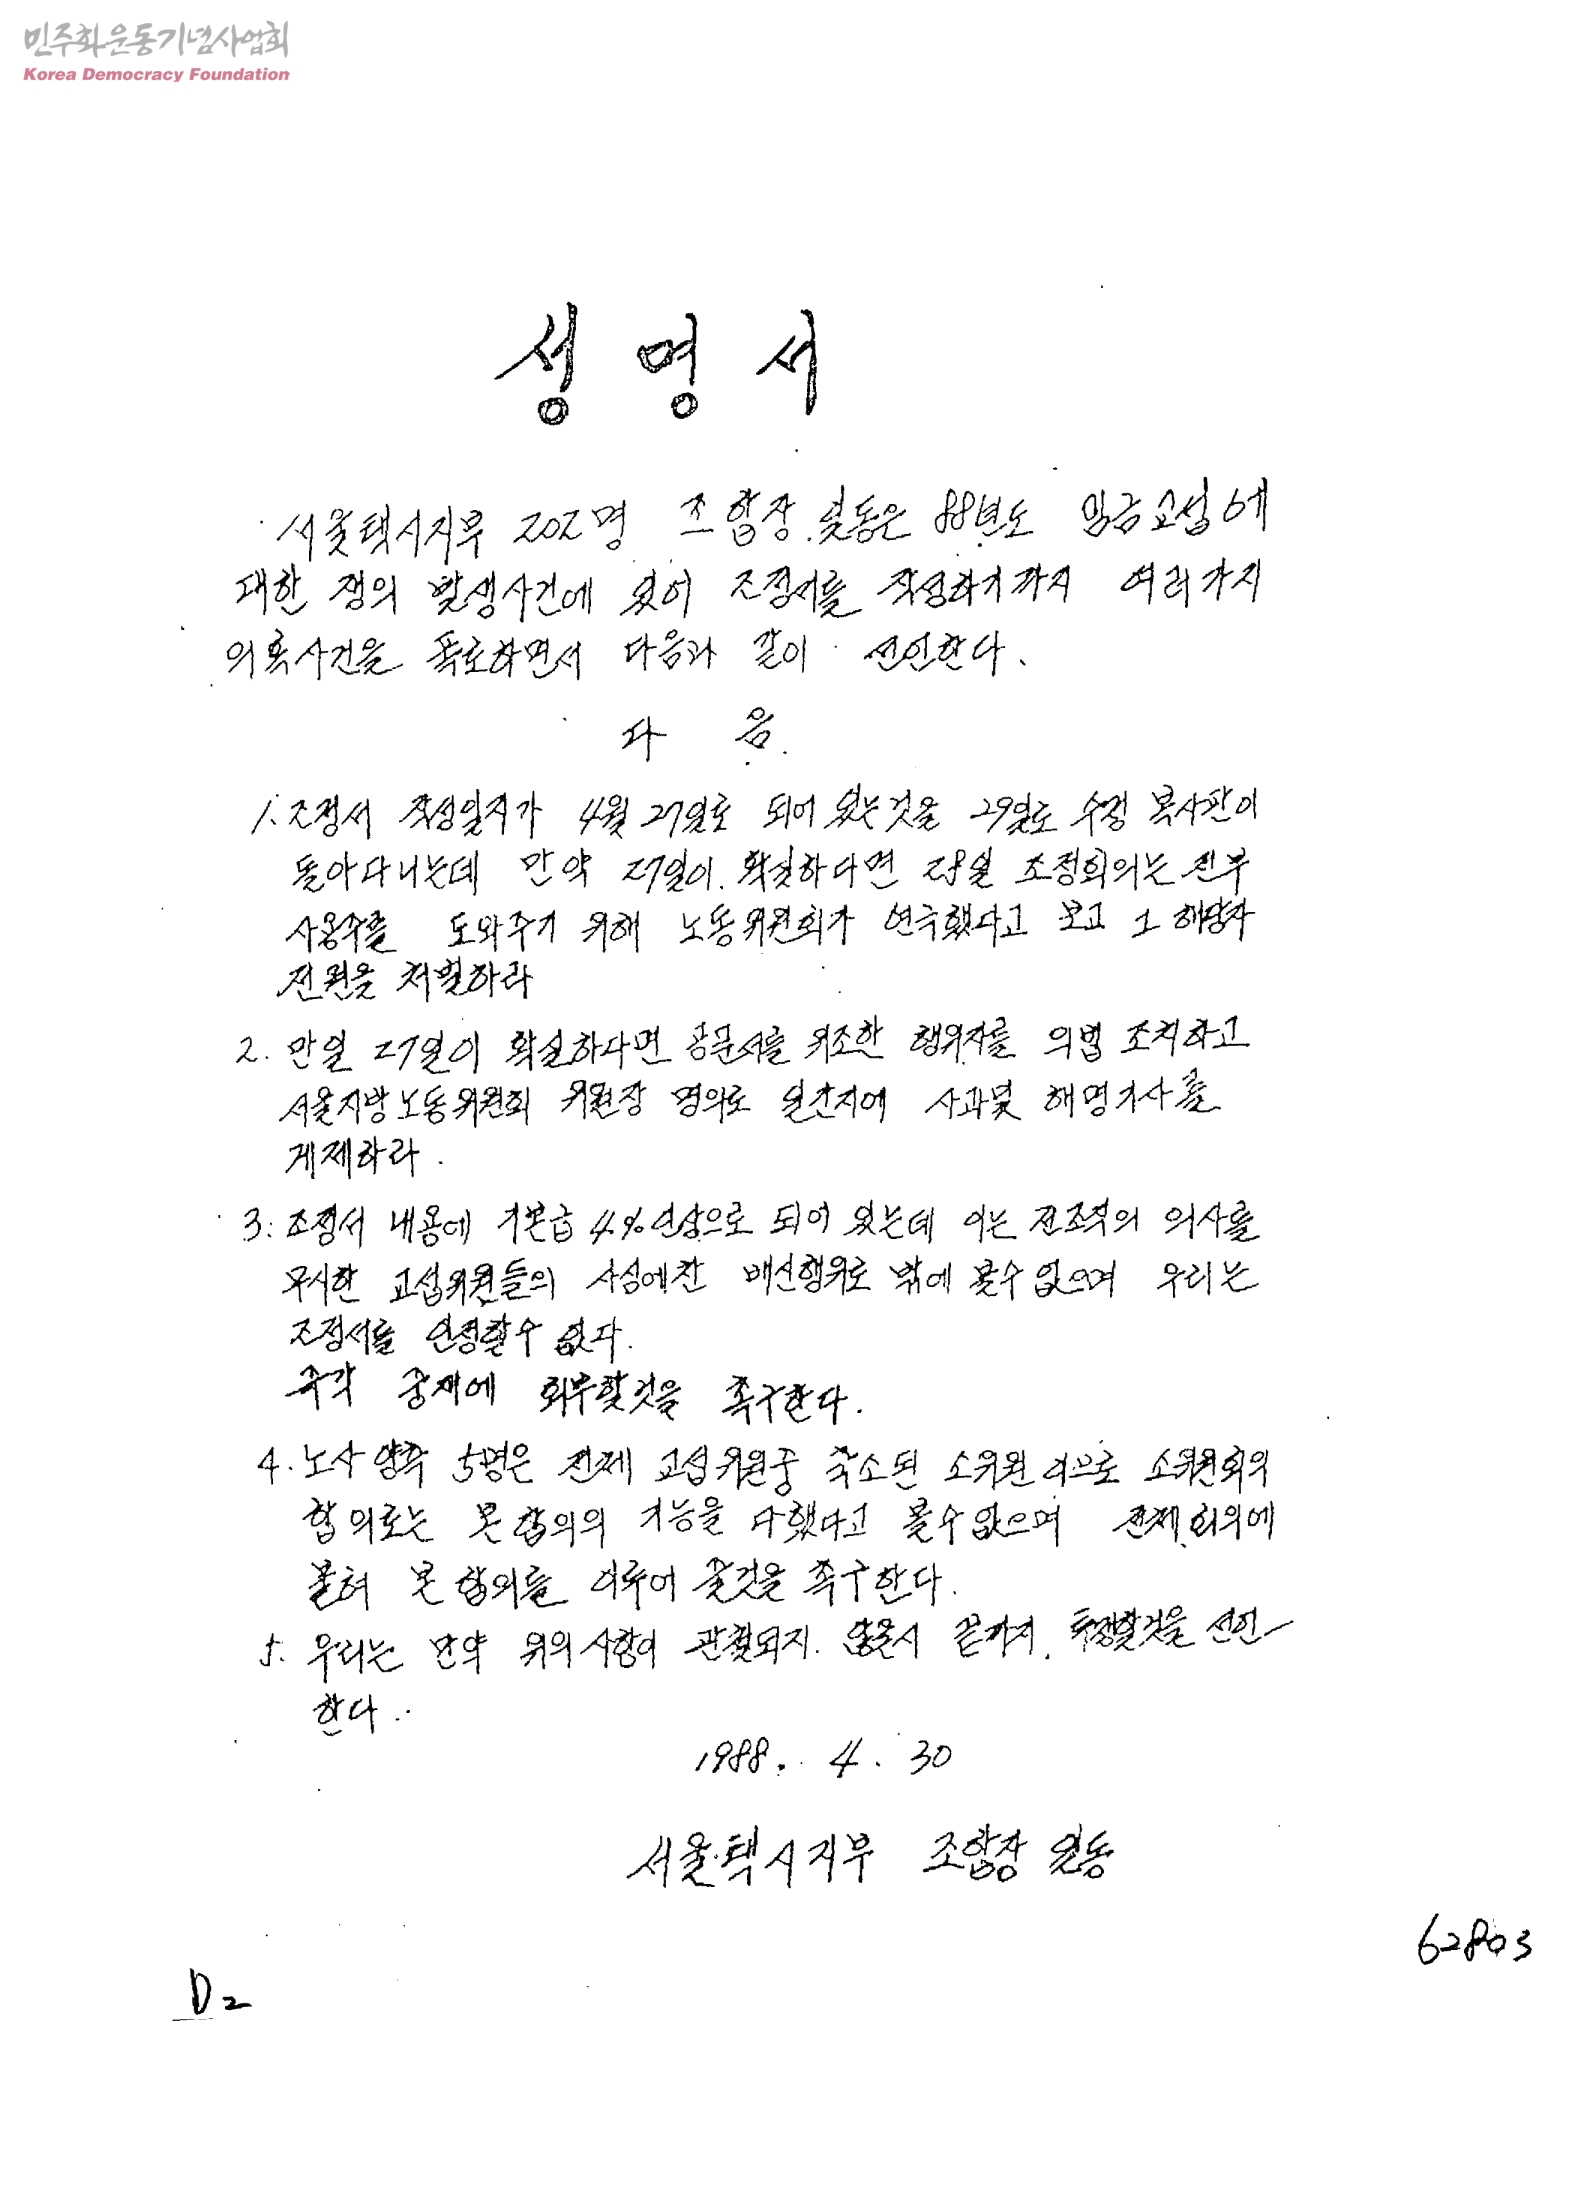 민주화운동기념사업회
Korea Democracy Foundation
성 명 서
서울택시지부 202명 조합장 일동은 88년도 임금교섭에
대한 쟁의 발생사건에 있어 조정서를 작성하기까지 여러가지
의혹사건을 폭로하면서 다음과 같이 선언한다.
다 음
1. 조정서 작성일자가 4월 27일로 되어 있는것을 29일로 수정 복사판이
돌아다니는데 만약 27일이 확실하다면 28일 조정회의는 전부
사용주를 도와주기 위해 노동위원회가 연극했다고 보고 그 해당자
전원을 처벌하라
2. 만일 27일이 확실하다면 공문서를 위조한 행위자를 의법 조치하고
서울지방노동위원회 위원장 명의로 일간지에 사과및 해명기사를
게제하라.
3. 조정서 내용에 기본급 4%인상으로 되어 있는데 이는 전조직의 의사를
무시한 교섭위원들의 사심에찬 배신행위로 밖에 볼수 없으며 우리는
조정서를 인정할수 없다.
즉각 중재에 회부할것을 촉구한다.
4. 노사 양측 5명은 전체 교섭위원중 축소된 소위원 이므로 소위원회의
합의로는 본 합의의 기능을 다했다고 볼수 없으며 전체 회의에
붙혀 본 합의를 이루어 줄것을 촉구한다.
5. 우리는 만약 위의 사항이 관철되지 않을시 끝까지 투쟁할것을 선언
한다.
1988. 4. 30
서울택시지부 조합장 일동
62803
D2